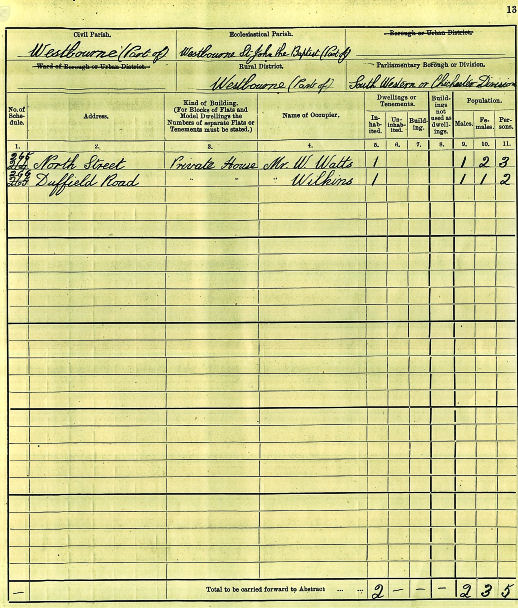 13
Civil Parish. Ecclesiastical Parish. Borough or Urban District.
Westbourne (Part of) Westbourne St John the Baptist (Part of)
Ward of Borough or Urban District. Rural District. Parliamentary Borough or Division.
Westbourne (Part of) South Western or Chichester Division
No. of Schedule. Address. Kind of Building. (For Blocks of Flats and Model Dwellings the Numbers of separate Flats or Tenements must be stated.) Name of Occupier. Dwellings or Tenements. Inhabited. Uninhabited. Building. Buildings not used as dwellings. Population. Males. Females. Persons.
1. 2. 3. 4. 5. 6. 7. 8. 9. 10. 11.
North Street Private House Mr. W. Watts 1 1 2 3
Duffield Road " " " Wilkins 1 1 1 2
— Total to be carried forward to Abstract ... ... 2 — — — 2 3 5